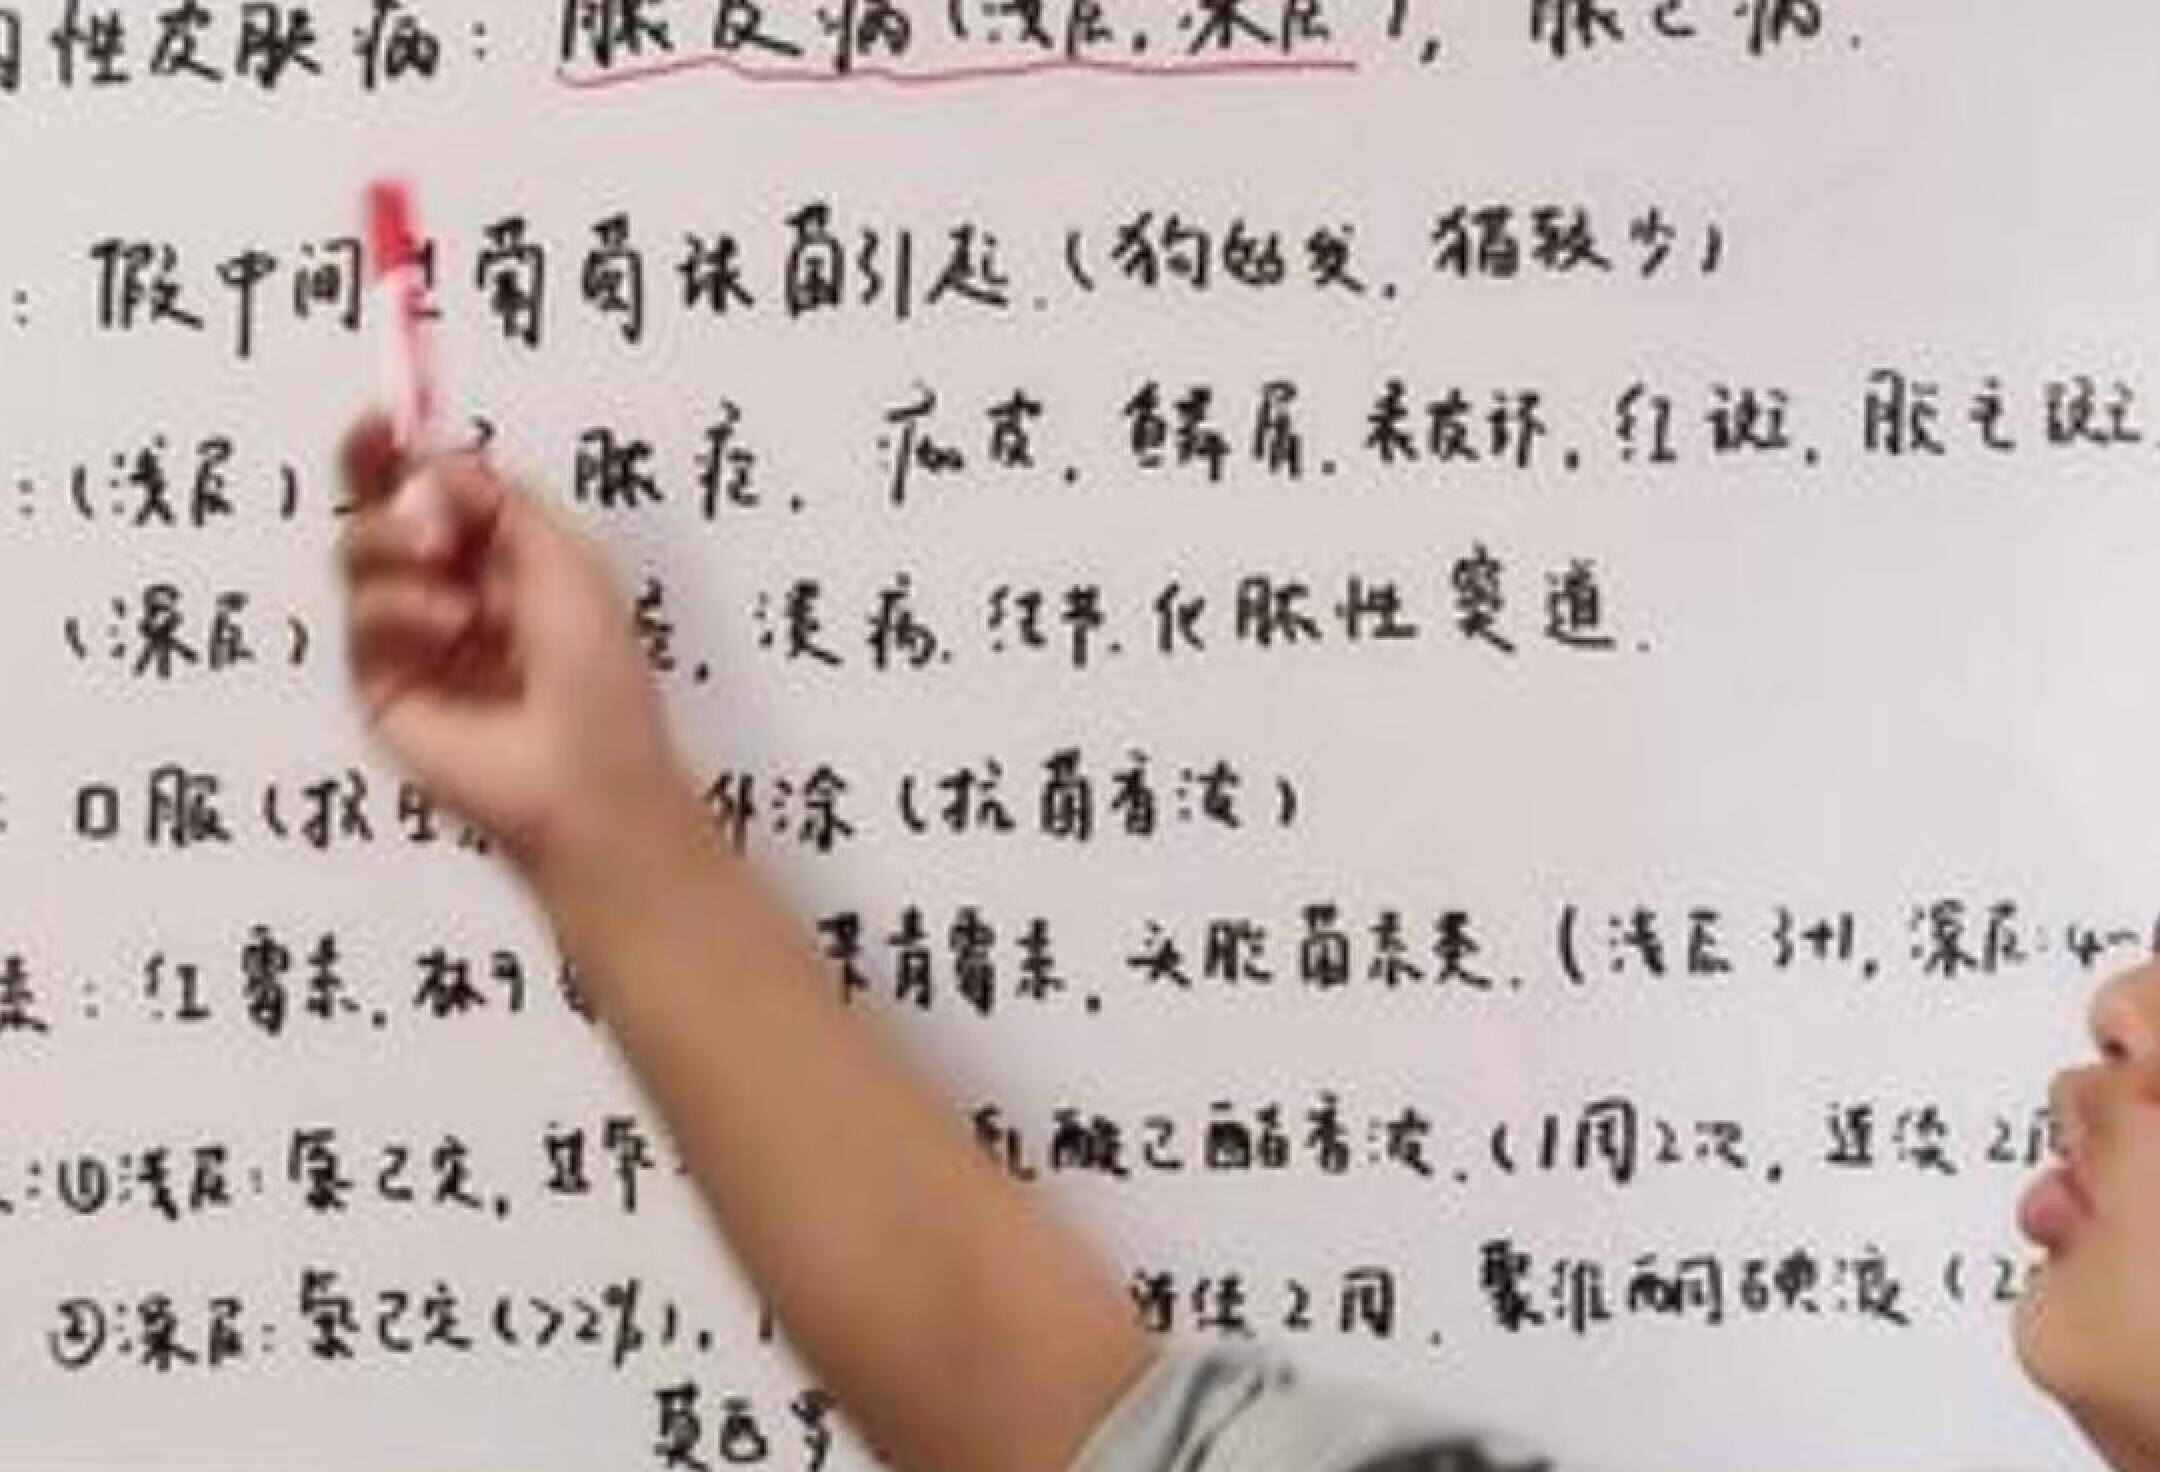 性皮肤病：脓皮病（浅层，深层），
：假中间 葡萄球菌引起．（狗多发．猫较少）
：（浅层） 脓疱．痂皮．鳞屑．表皮环．红斑．
（深层） ．溃疡．结节．化脓性窦道．
：口服（抗生 外涂（抗菌香波）
素：红霉素．林可 青霉素．头孢菌素类．（浅层3+1，深层：4
：①浅层：氯己定，过氧 乳酸乙酯香波．（1周2次，连续2周
②深层：氯己定（>2%）． 连续2周．聚维酮碘液（2
莫西罗